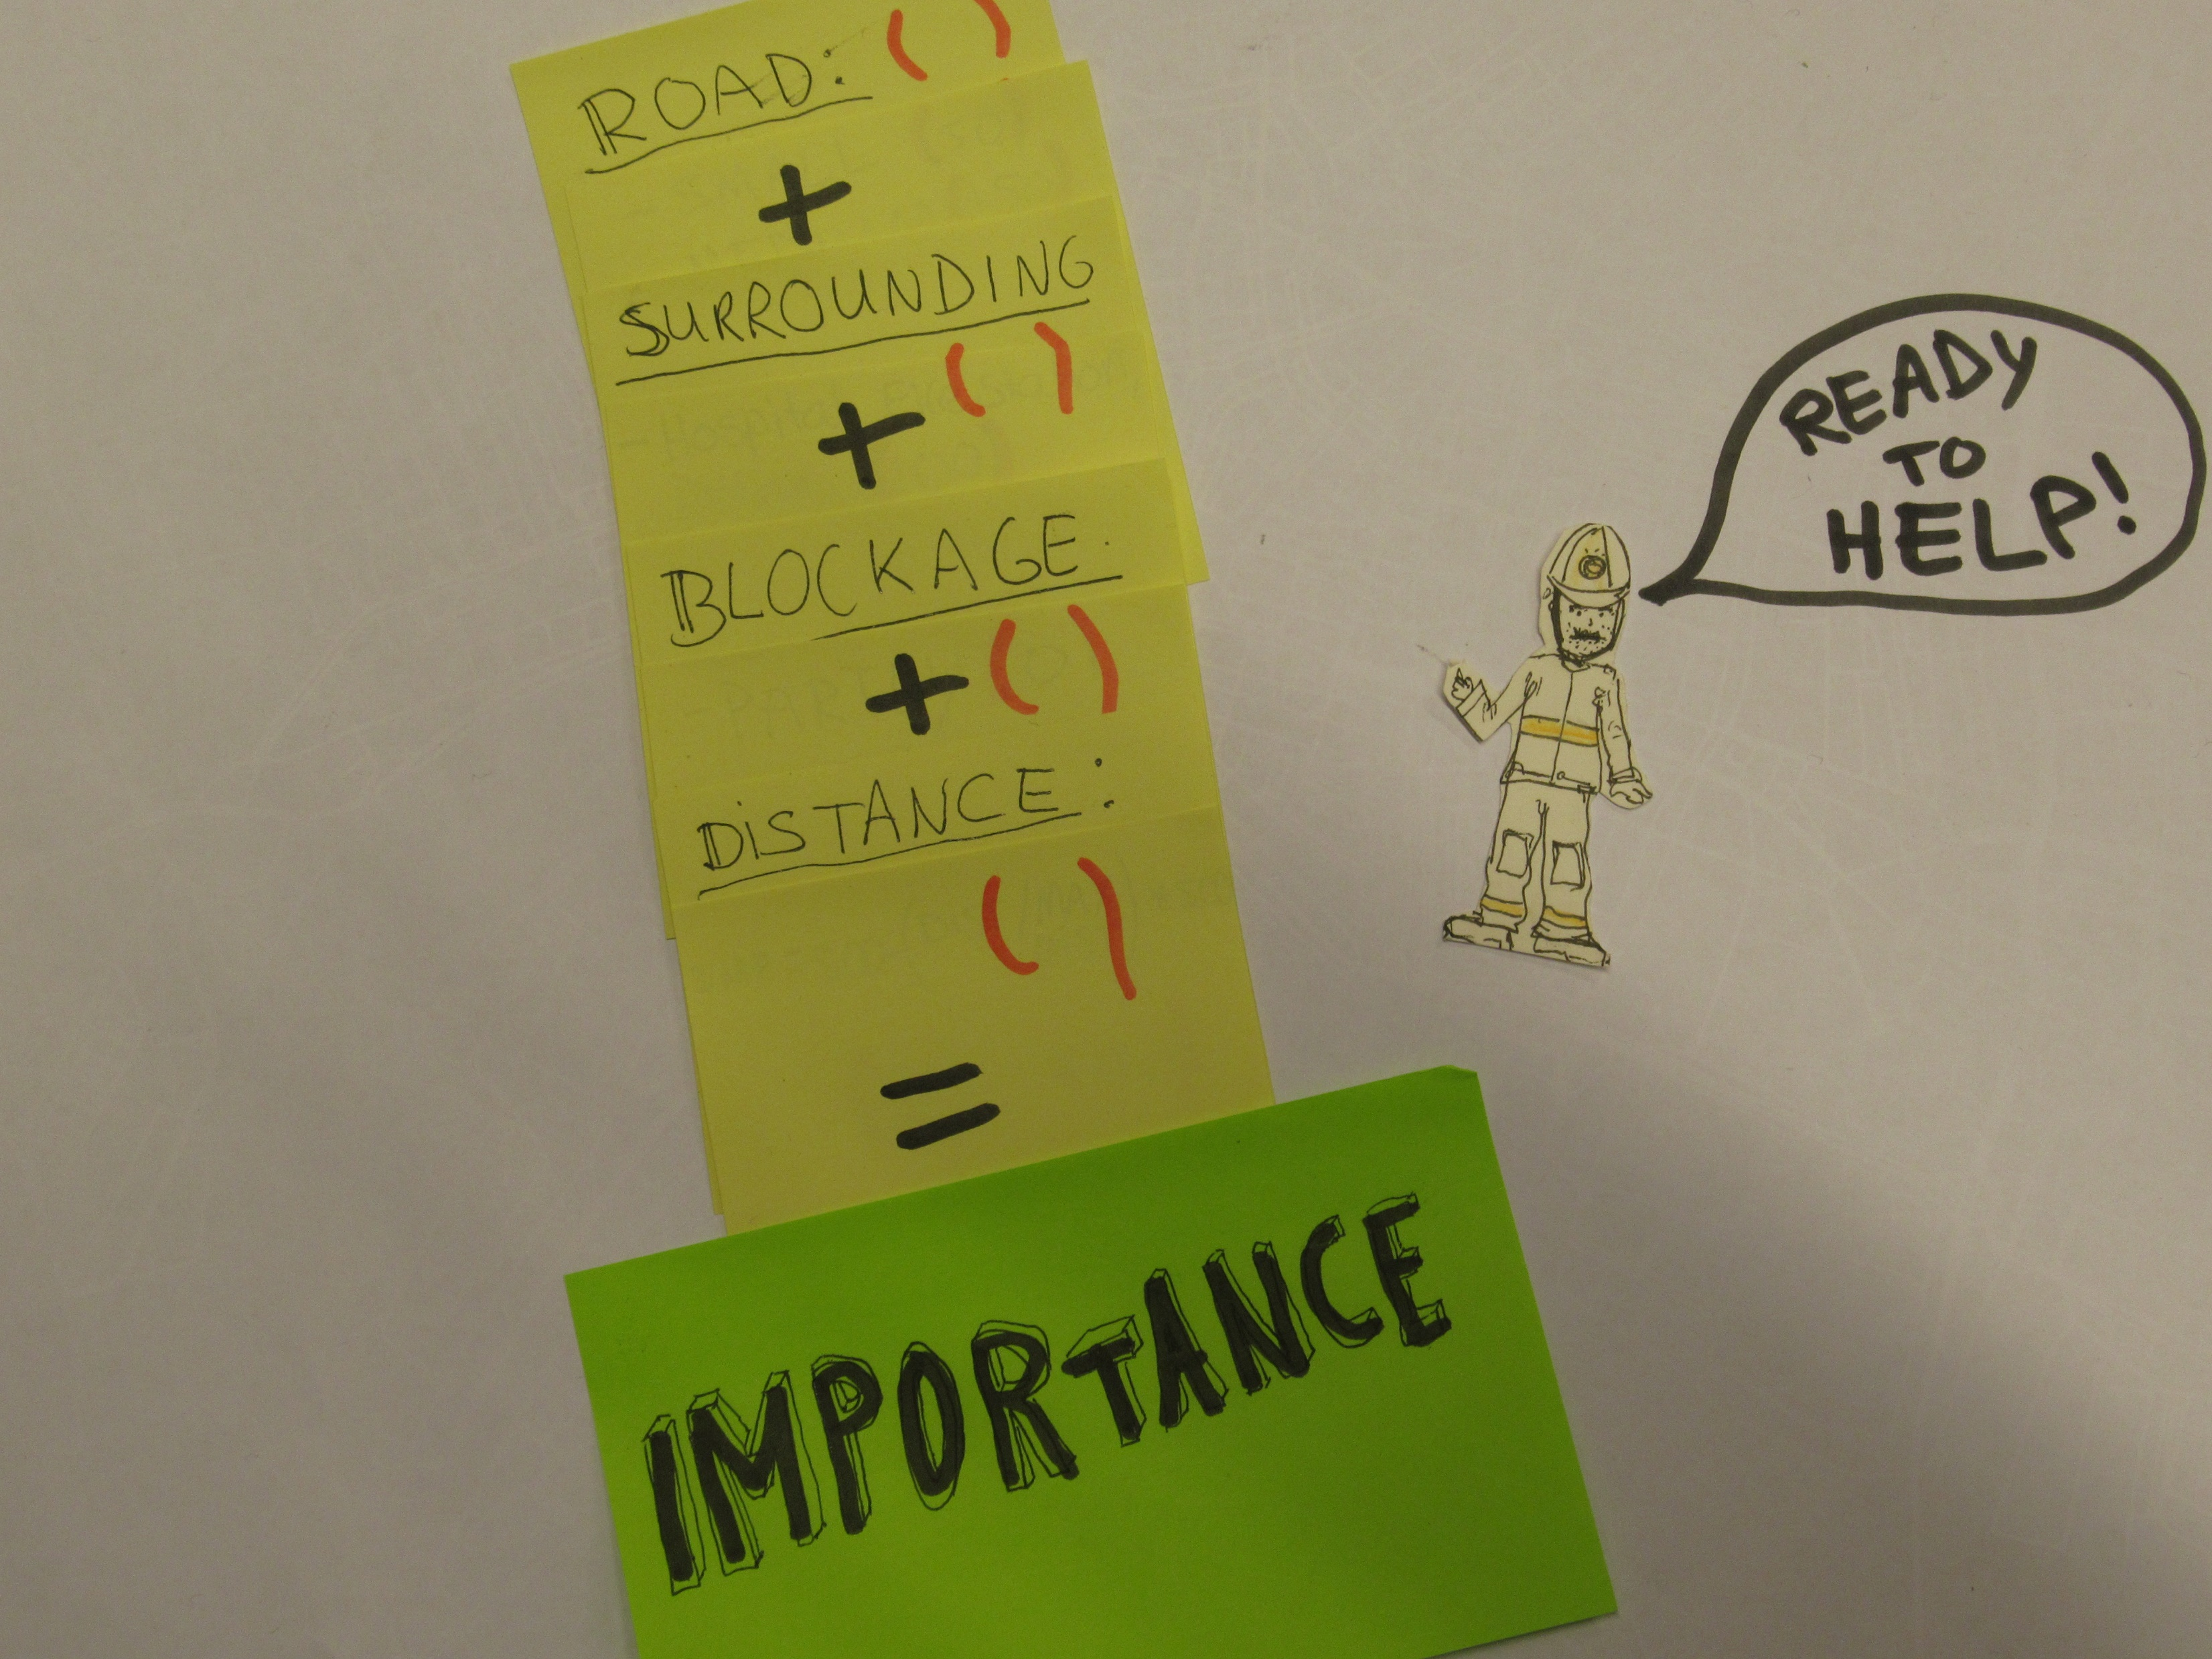 ROAD: ( )
+
SURROUNDING
+ ( )
BLOCKAGE.
+ ( )
DiSTANCE:
( )
=
IMPORTANCE
READY
TO
HELP!